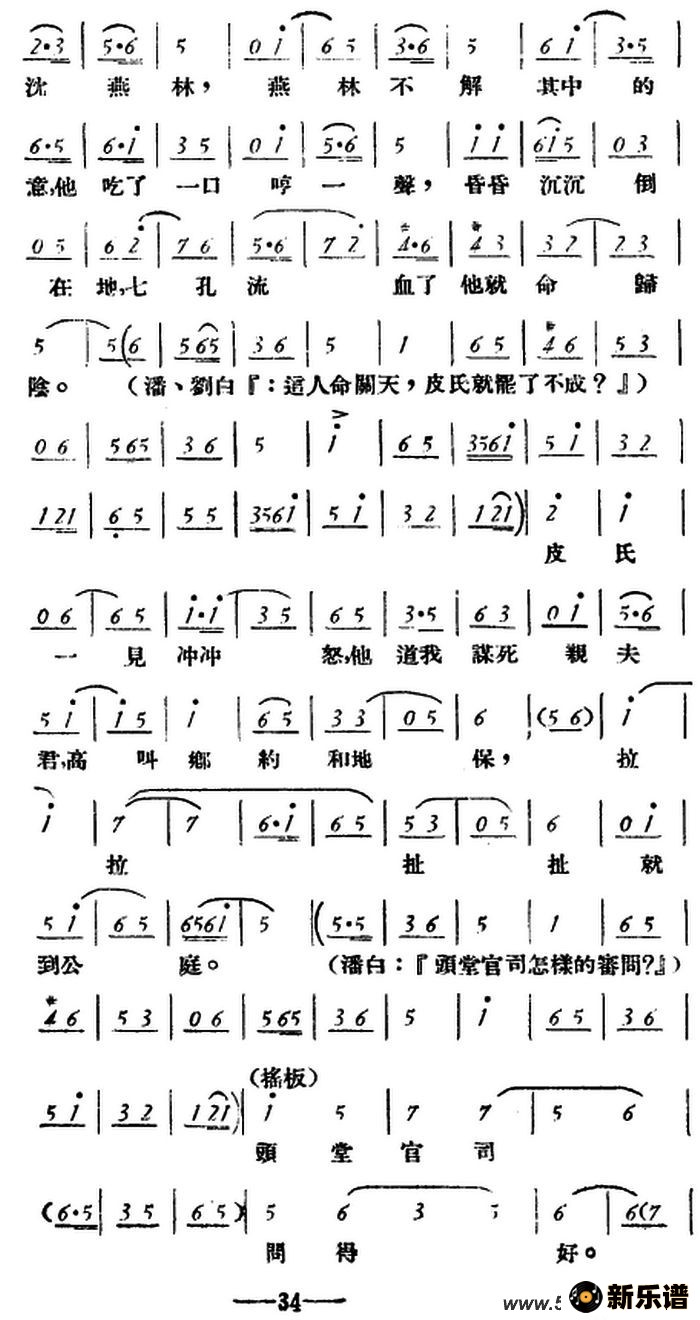 2·3 | 5·6 | 5 | 0 i | 6 5 | 3·6 | 5 | 6 i | 3·5 |
沈 燕 林， 燕 林 不 解 其中 的
6·5 | 6·i | 3 5 | 0 i | 5·6 | 5 | i i | 6i5 | 0 3 |
意,他 吃了 一口 哼 一 聲， 昏昏 沉沉 倒
0 5 | 6 2 | 7 6 | 5·6 | 7 2 | #4·6 | #4 3 | 3 2 | 2 3 |
在 地,七 孔 流 血了 他就 命 歸
5 | 5(6 | 565 | 3 6 | 5 | 1 | 6 5 | #4 6 | 5 3 |
陰。 （潘、劉白『：這人命關天，皮氏就罷了不成？』）
0 6 | 565 | 3 6 | 5 | i | 6 5 | 356i | 5 i | 3 2 |
121 | 6 5 | 5 5 | 356i | 5 i | 3 2 | 121) | 2 | i |
皮 氏
0 6 | 6 5 | i·i | 3 5 | 6 5 | 3·5 | 6 3 | 0 i | 5·6 |
一 見 冲冲 怒,他 道我 謀死 親 夫
5 i | i 5 | i | 6 5 | 3 3 | 0 5 | 6 | (5 6) | i |
君,高 叫 鄉 約 和地 保， 拉
i | 7 | 7 | 6·i | 6 5 | 5 3 | 0 5 | 6 | 0 i |
拉 扯 扯 就
5 i | 6 5 | 656i | 5 | (5·5 | 3 6 | 5 | 1 | 6 5 |
到公 庭。 （潘白：『頭堂官司怎樣的審問?』）
#4 6 | 5 3 | 0 6 | 565 | 3 6 | 5 | i | 6 5 | 3 6 |
（搖板）
5 i | 3 2 | 121) | i 5 7 7 | 5 6 |
頭 堂 官 司
(6·5 | 3 5 | 6 5) | 5 6 3 5 | 6 6(7 |
問 得 好。
—34—
www.5
新乐谱